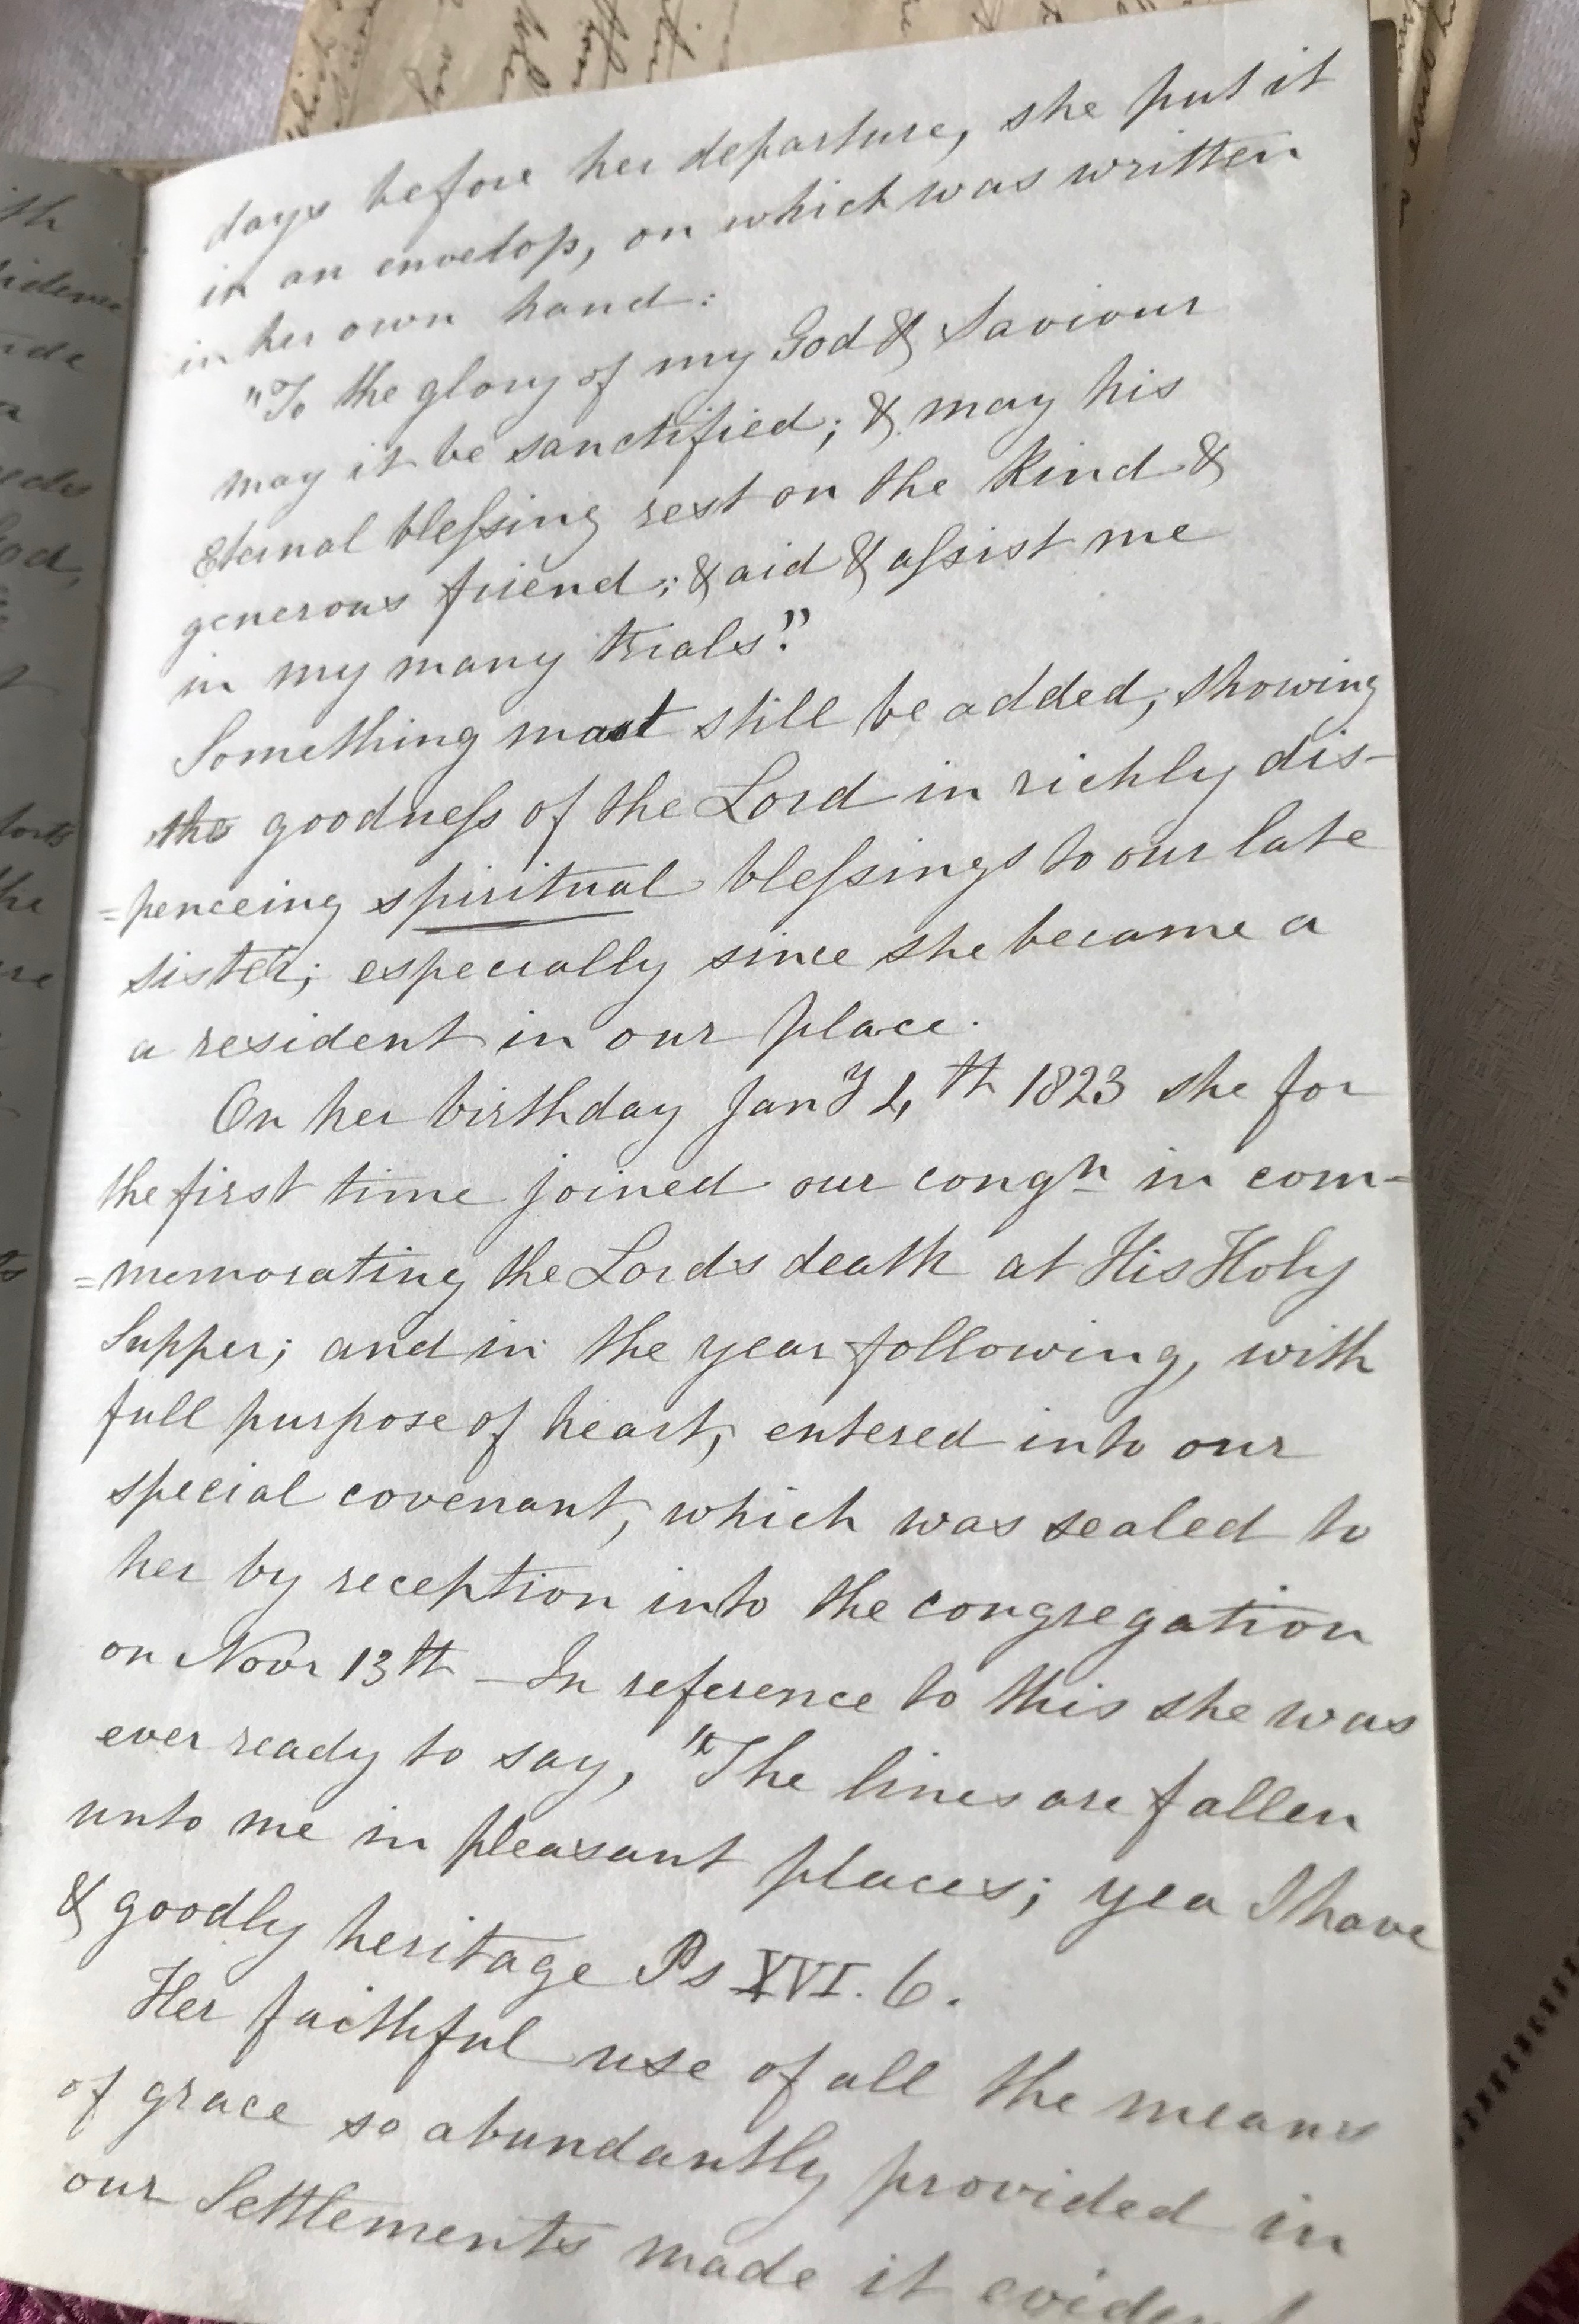 days before her departure, she put it
in an envelop, on which was written
in her own hand:
"To the glory of my God & Saviour
may it be sanctified; & may his
eternal bleſsing rest on the kind &
generous friend; & aid & aſsist me
in my many trials."
Something must still be added, showing
the goodneſs of the Lord in richly dis-
=penceing spiritual bleſsings to our late
sister; especially since she became a
a resident in our place.
On her birthday Jany 1,th 1823 she for
the first time joined our congn in com=
=memorating the Lords death at His Holy
Supper; and in the year following, with
full purpose of heart, entered into our
special covenant, which was sealed to
her by reception into the congregation
on Novr 13th - In reference to this she was
ever ready to say, "The lines are fallen
unto me in pleasant places; yea I have
& goodly heritage Ps XVI. 6.
Her faithful use of all the means
of grace so abundantly provided in
our Settlements made it